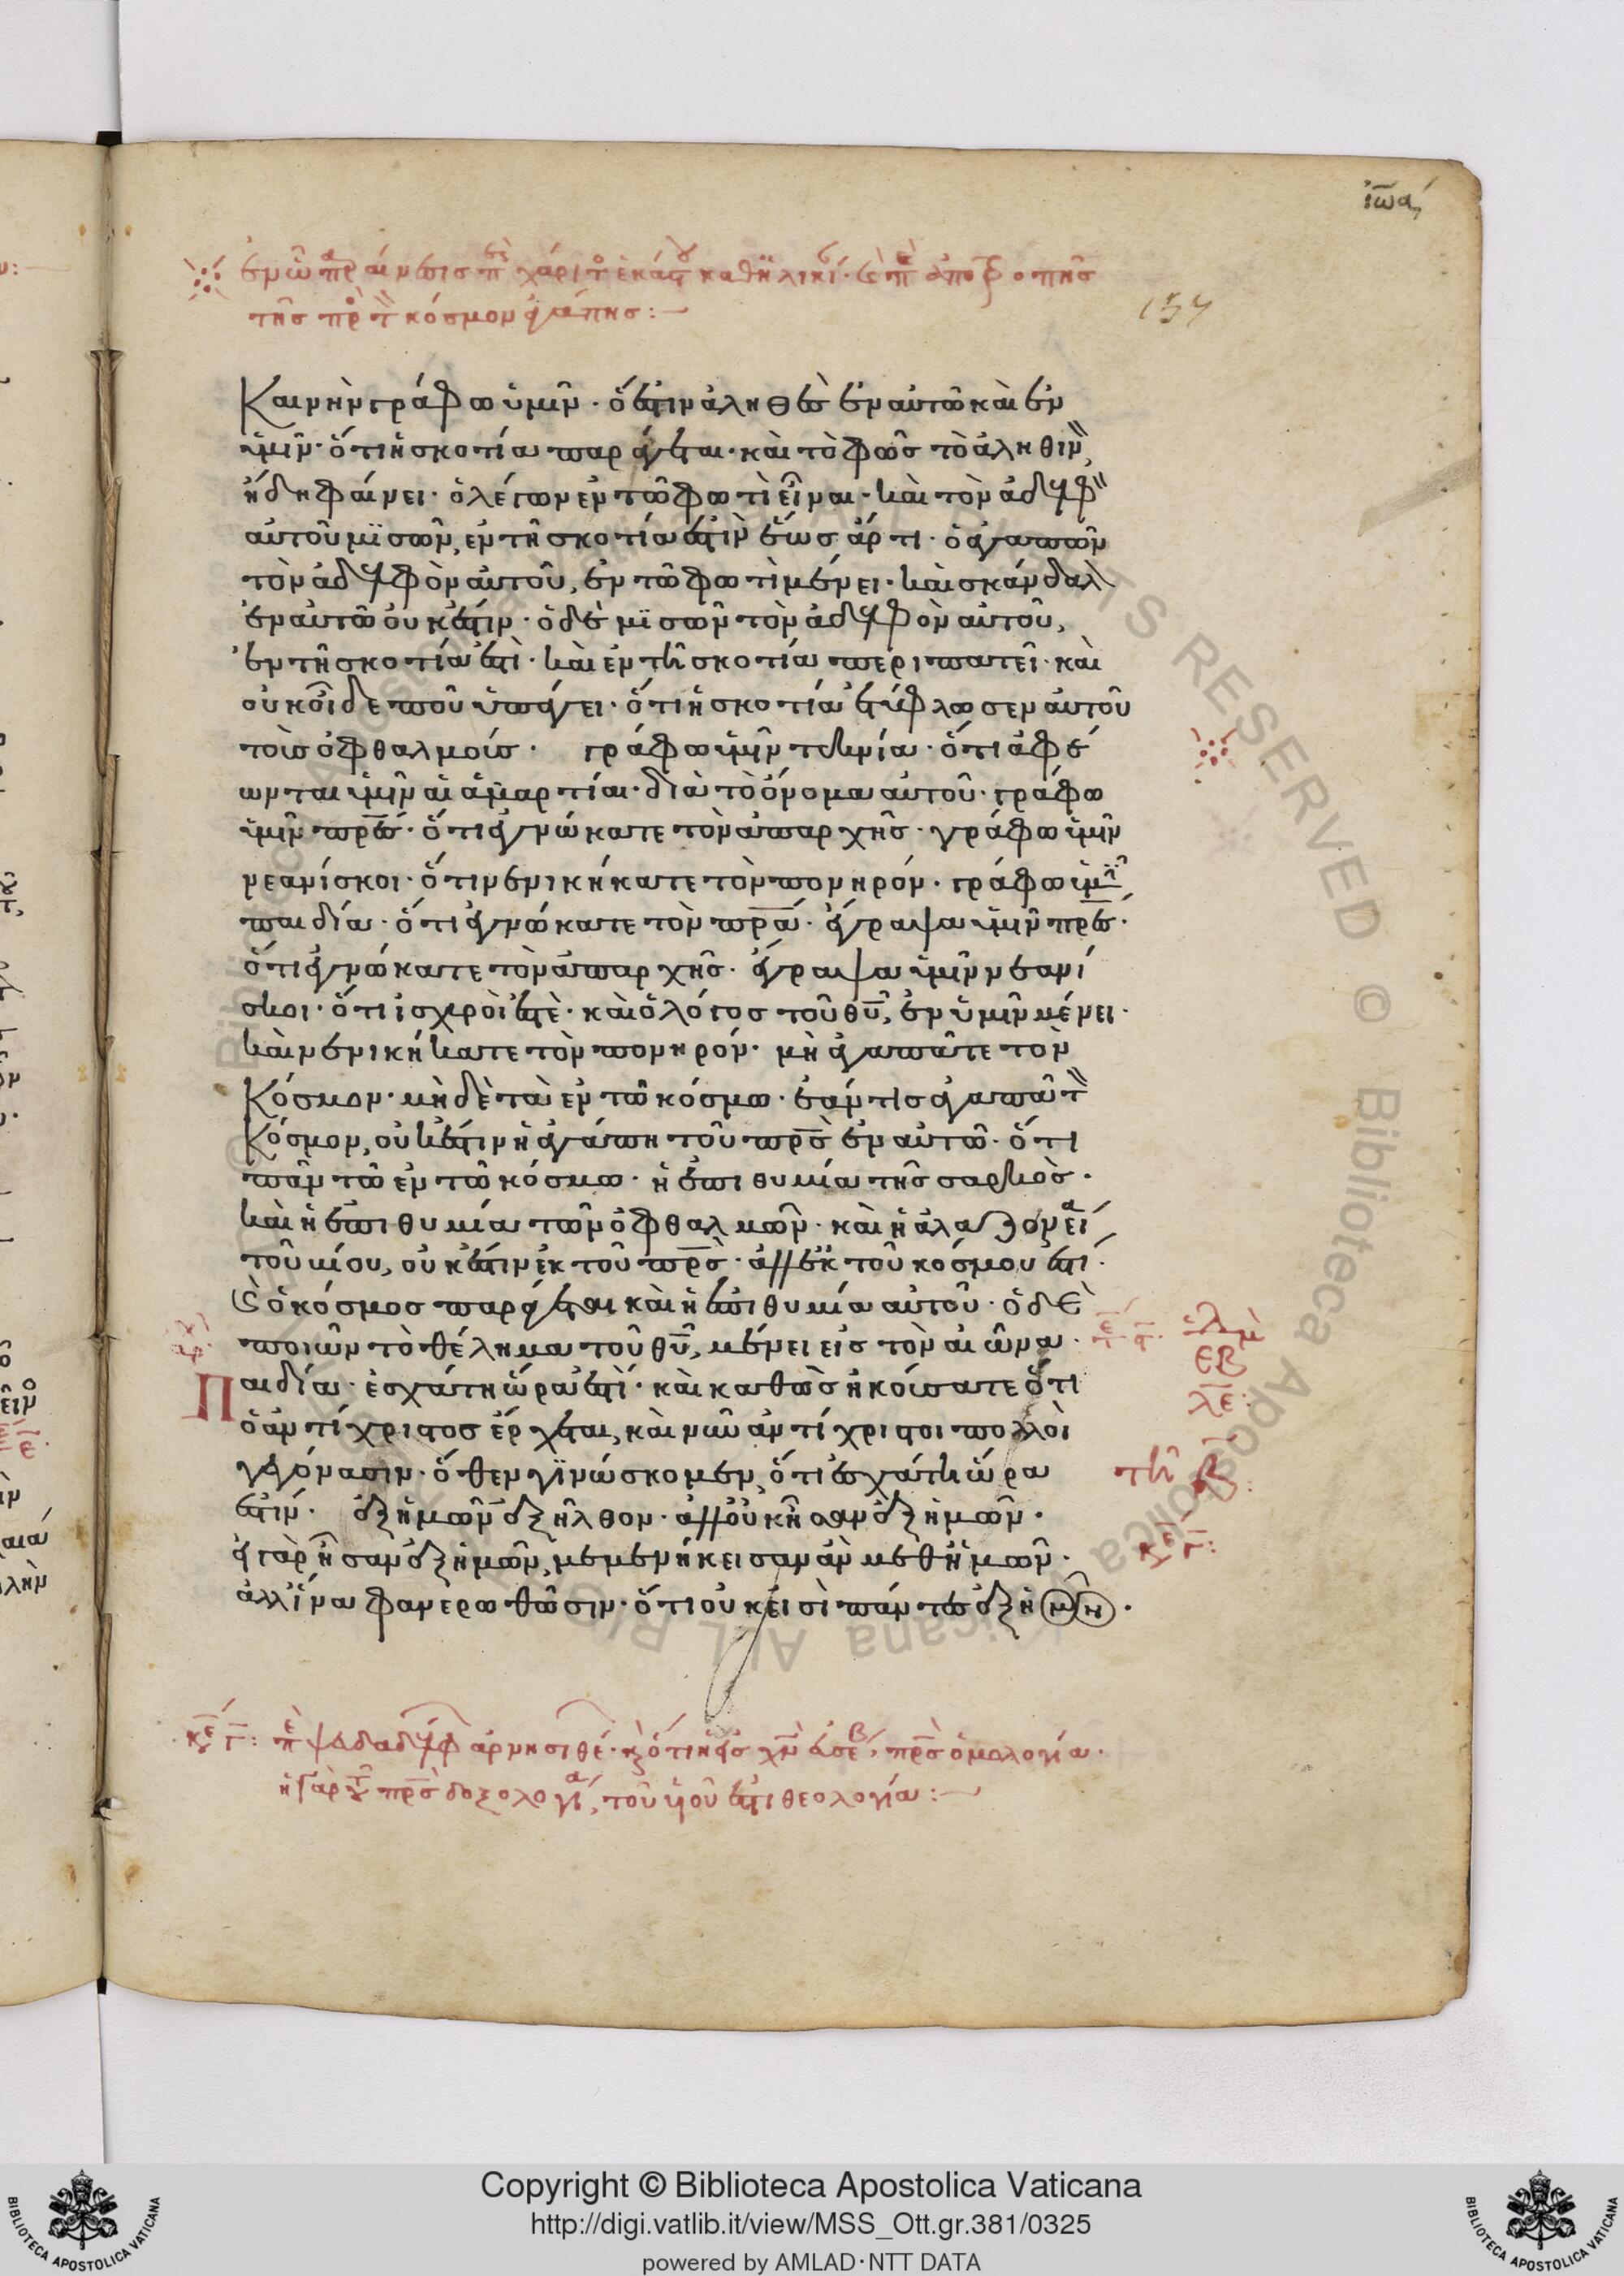 ἰωα
ἐν ᾧ παραίνεσις περὶ χάριτος ἑκάστου καθ ἡλικί· καὶ περὶ ἀποτροπῆς
τῆς πρὸς τὸν κόσμον ἀγάπης:
154
Καινὴν γράφω ὑμῖν· ὅ ἐστιν ἀληθὲς ἐν αὐτῶ καὶ ἐν
ὑμῖν· ὅτι ἡ σκοτία παράγεται· καὶ τὸ φῶς τὸ ἀληθινὸν
ἤδη φαίνει· ὁ λέγων ἐν τῶ φωτὶ εἶναι· καὶ τὸν ἀδελφὸν
αὐτοῦ μϊσῶν, ἐν τῆ σκοτία ἐστὶν ἕως ἄρτι· ὁ ἀγαπῶν
τὸν ἀδελφὸν αὐτοῦ, ἐν τῶ φωτὶ μένει· καὶ σκάνδαλὸν
ἐν αὐτῶ οὐκ ἔστιν· ὁ δὲ μϊσῶν τὸν ἀδελφὸν αὐτοῦ,
ἐν τῆ σκοτία ἐστὶ· καὶ ἐν τῆ σκοτία περιπατεῖ· καὶ
οὐκ οἶδε ποῦ ὑπάγει· ὅτι ἡ σκοτία ἐτύφλωσεν αὐτοῦ
τοὺς ὀφθαλμούς· γράφω ὑμῖν τεκνία· ὅτι ἀφέ
ωνται ὑμῖν αἱ ἁμαρτίαι· διὰ τὸ ὄνομα αὐτοῦ· γράφω
ὑμῖν πρες· ὅτι ἐγνώκατε τὸν ἀπαρχῆς· γράφω ὑμῖν
νεανίσκοι· ὅτι νενικήκατε τὸν πονηρόν· γράφω ὑμῖ
παιδία· ὅτι ἐγνώκατε τὸν πρα· ἔγραψα ὑμῖν πρες·
ὅτι ἐγνώκατε τὸν ἀπαρχῆς· ἔγραψα ὑμῖν νεανί
σκοι· ὅτι ἰσχυροὶ ἐστὲ· καὶ ὁ λόγος τοῦ θυ, ἐν ὑμῖν μένει·
καὶ νενικήκατε τὸν πονηρόν· μὴ ἀγαπᾶτε τὸν
Κόσμον· μὴ δὲ τὰ ἐν τῶ κόσμω· ἐάν τις ἀγαπᾶ τὸν
Κόσμον, οὐκ ἔστιν ἡ ἀγάπη τοῦ πρς ἐν αὐτῶ· ὅτι
πᾶν τὸ ἐν τῶ κόσμω· ἡ ἐπιθυμία τῆς σαρκὸς·
καὶ ἡ ἐπιθυμία τῶν ὀφθαλμῶν· καὶ ἡ ἀλαζονεία
τοῦ βίου, οὐκ ἔστιν ἐκ τοῦ πρς· ἀλλ ἐκ τοῦ κόσμου ἐστί·
καὶ ὁ κόσμος παράγεται καὶ ἡ ἐπιθυμία αὐτοῦ· ὁ δὲ
ποιῶν τὸ θέλημα τοῦ θυ, μένει εἰς τὸν αἰῶνα·
Παιδία· ἐσχάτη ὥρα ἐστὶ· καὶ καθὼς ἠκούσατε ὅτι
ὁ ἀντίχριστος ἔρχεται, καὶ νῦν ἀντίχριστοι πολλοὶ
γεγόνασιν· ὅθεν γϊνώσκομεν, ὅτι ἐσχάτη ὥρα
ἐστίν· ἐξ ἡμῶν ἐξῆλθον· ἀλλ οὐκ ἦσαν ἐξ ἡμῶν·
εἰ γὰρ ἦσαν ἐξ ἡμῶν, μεμενήκεισαν ἂν μεθ ἡμῶν·
ἀλλ ἵνα φανερωθῶσιν· ὅτι οὐκ εἰσὶ πάντες ἐξ ἡμῶν·
ΕΒ
λε:
τῆ β
κε γ: περὶ ψευδαδέλφων ἀρνησιθέων· καὶ ὅτι ἡ εἰς χν ἀσέβ, πρς ὁμολογία·
ἡ γὰρ τοῦ πρς δοξολογία, τοῦ υἱοῦ ἐστι θεολογία:
Copyright © Biblioteca Apostolica Vaticana
http://digi.vatlib.it/view/MSS_Ott.gr.381/0325
powered by AMLAD·NTT DATA